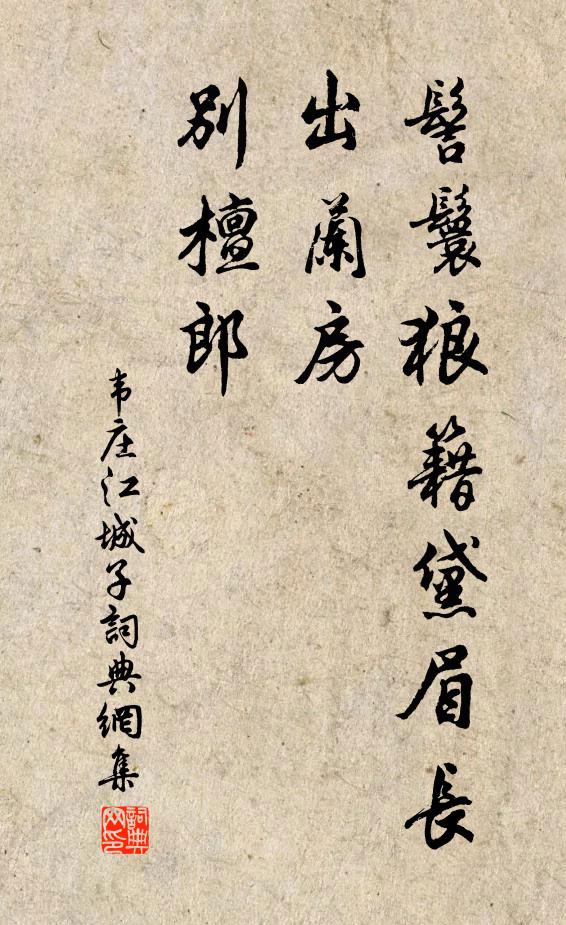 髻鬟狼籍黛眉長
出蘭房
別檀郎
韦庄江城子詞典網集
詞典网印